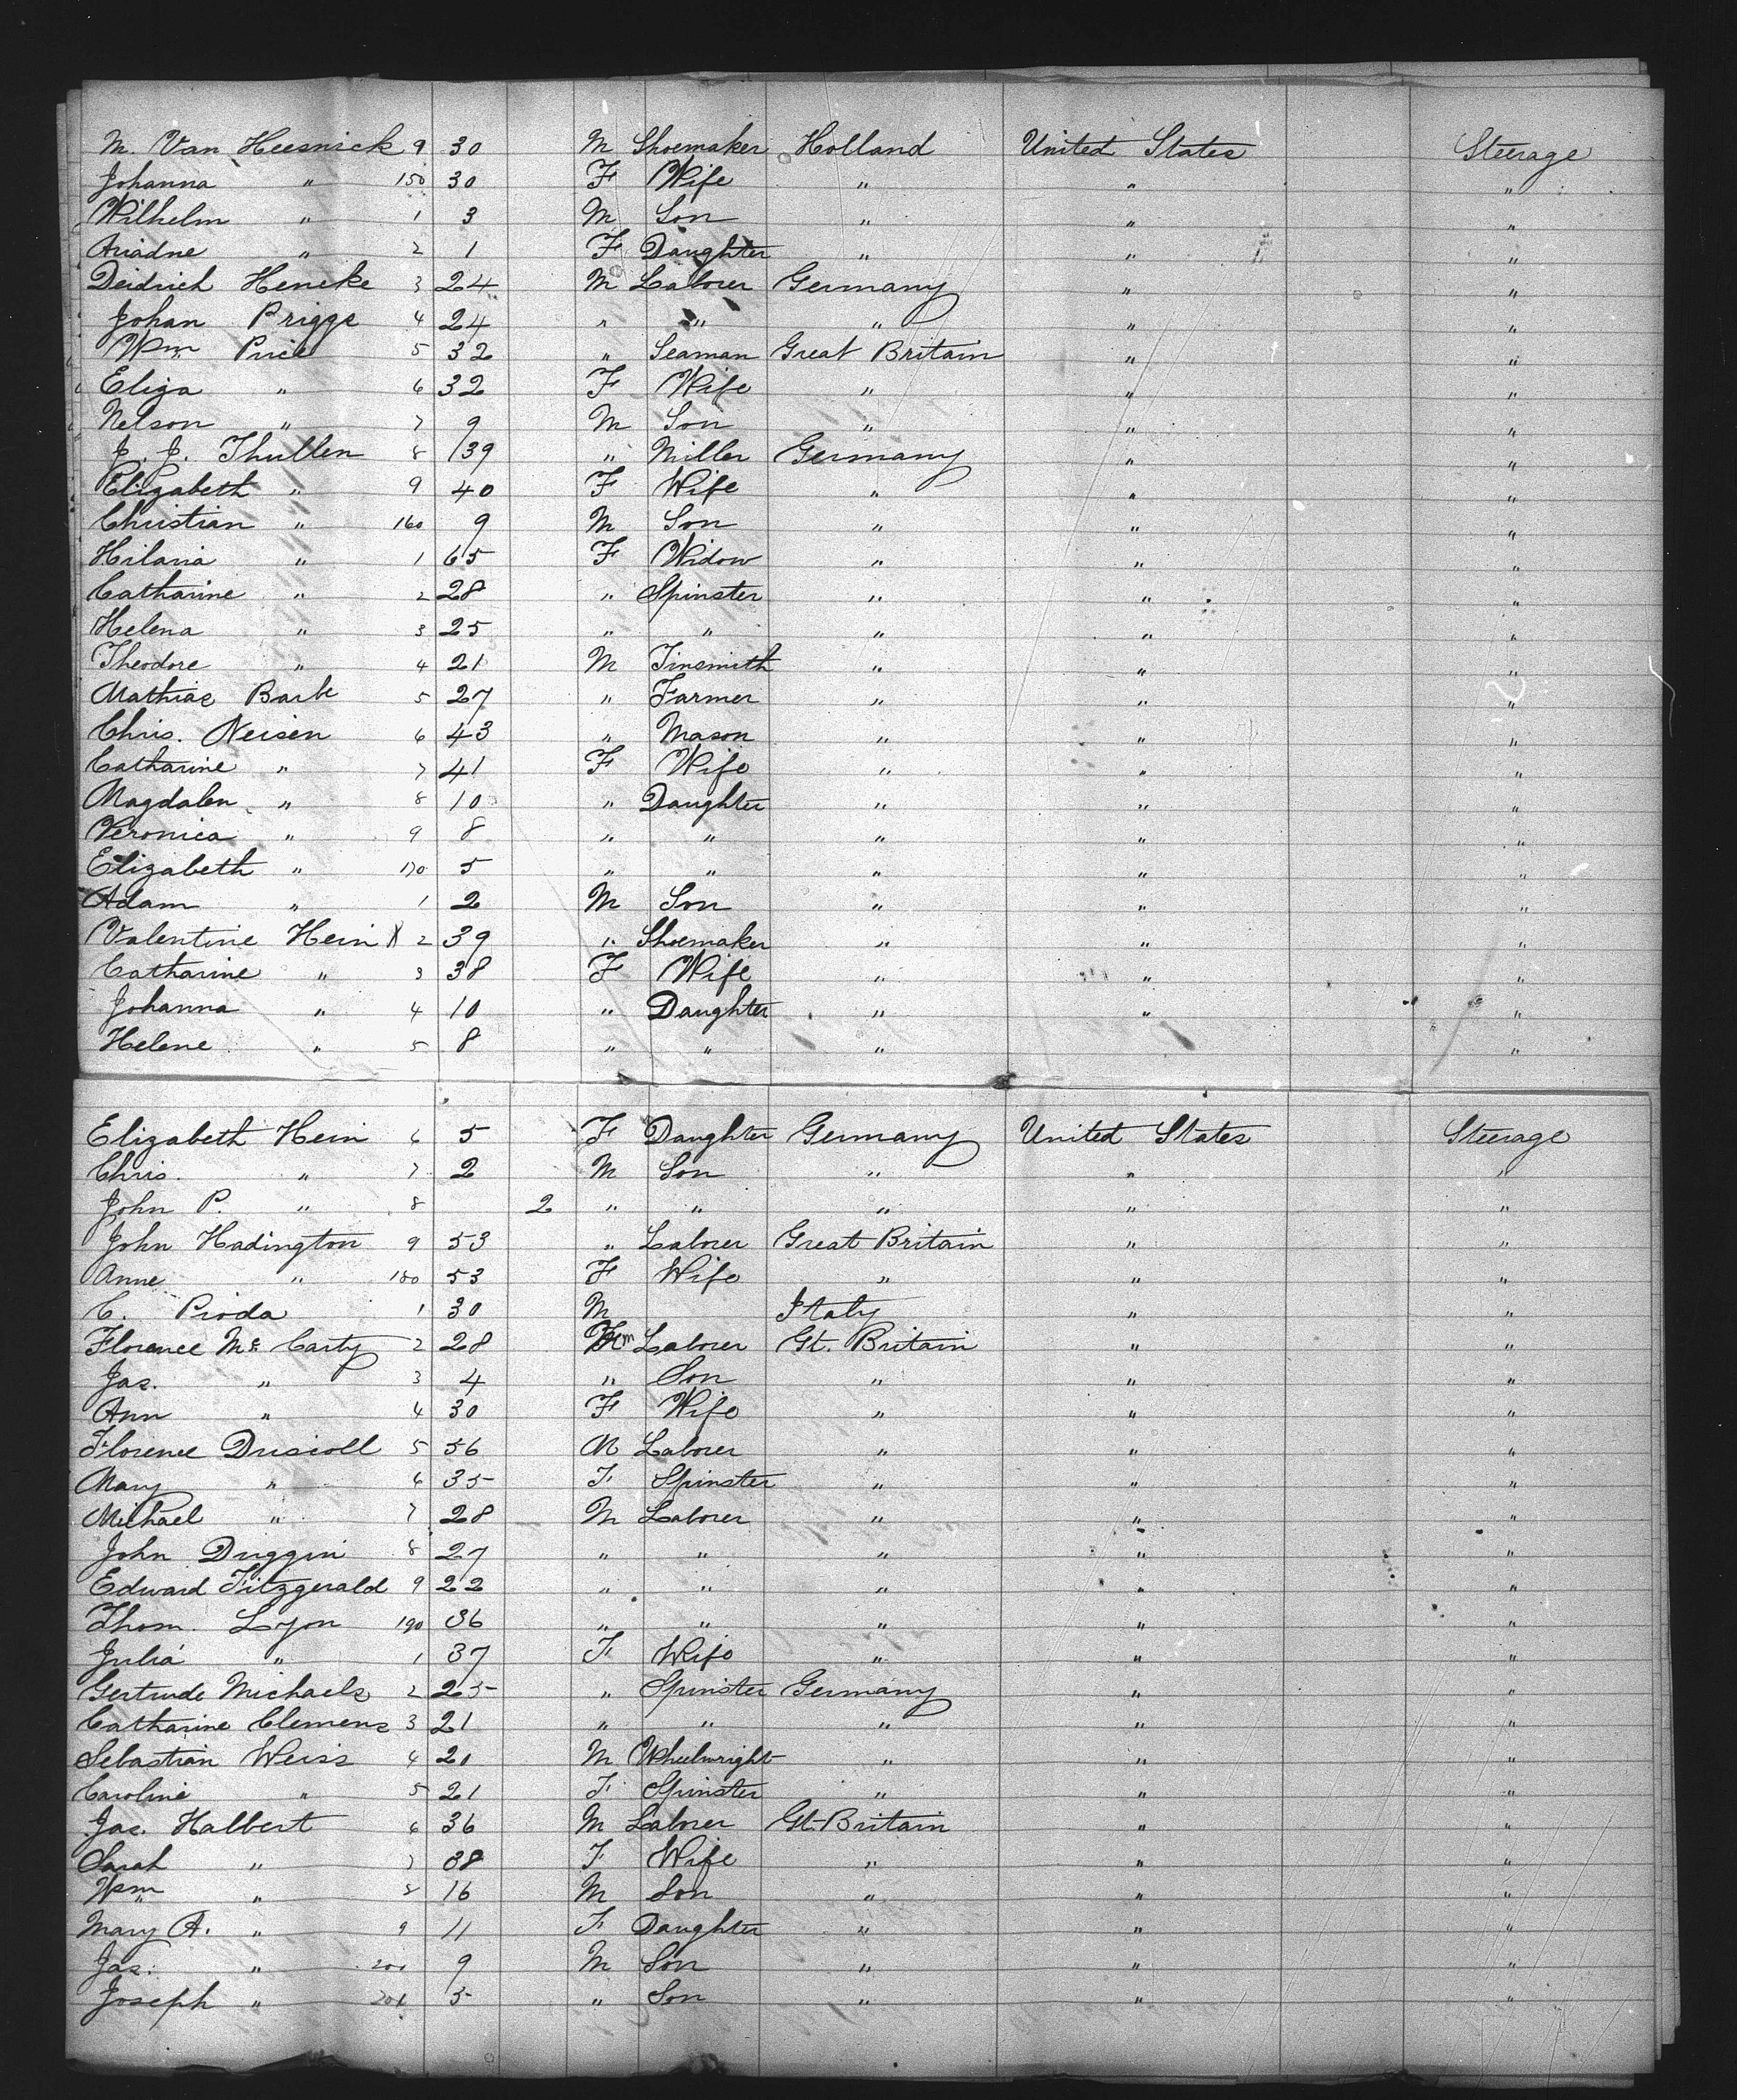 M. Van Heesnick 9 30 M Shoemaker Holland United States Steerage
Johanna " 150 30 F Wife " " "
Wilhelm " 1 3 M Son " " "
Ariadne " 2 1 F Daughter " " "
Deidrich Hencke 3 24 M Laborer Germany " "
Johan Prigge 4 24 " " " " "
Wm Price 5 32 " Seaman Great Britain " "
Eliza " 6 32 F Wife " " "
Nelson " 7 9 M Son " " "
J. J. Thullen 8 39 " Miller Germany " "
Elizabeth " 9 40 F Wife " " "
Christian " 160 9 M Son " " "
Hilaria " 1 65 F Widow " " "
Catharine " 2 28 " Spinster " " "
Helena " 3 25 " " " " "
Theodore " 4 21 M Tinsmith " " "
Mathias Barb 5 27 " Farmer " " "
Chris. Neisen 6 43 " Mason " " "
Catharine " 7 41 F Wife " " "
Magdalen " 8 10 " Daughter " " "
Veronica " 9 8 " " " " "
Elizabeth " 170 5 " " " " "
Adam " 1 2 M Son " " "
Valentine Hein 2 39 " Shoemaker " " "
Catharine " 3 38 F Wife " " "
Johanna " 4 10 " Daughter " " "
Helene " 5 8 " " " "
Elizabeth Hein 6 5 F Daughter Germany United States Steerage
Chris. " 7 2 M Son " " "
John P. " 8 2 " " " " "
John Hadington 9 53 " Laborer Great Britain " "
Anne " 180 53 F Wife " " "
C. Pioda 1 30 M Italy " "
Florence Mc Carty 2 28 m Laborer Gt. Britain " "
Jas. " 3 4 " Son " " "
Ann " 4 30 F Wife " " "
Florence Driscoll 5 56 M Laborer " " "
Mary " 6 35 F Spinster " " "
Michael " 7 28 M Laborer " " "
John Duggin 8 27 " " " " "
Edward Fitzgerald 9 22 " " " " "
Thom. Lyon 190 36 " " " " "
Julia " 1 37 F Wife " " "
Gertrude Michaels 2 25 " Spinster Germany " "
Catharine Clemens 3 21 " " " " "
Sebastian Weiss 4 20 M Wheelwright " " "
Caroline " 5 21 F Spinster " " "
Jas. Halbert 6 36 M Laborer Gt. Britain " "
Sarah " 7 38 F Wife " " "
Wm " 8 16 M Son " " "
Mary A. " 9 11 F Daughter " " "
Jas. " 200 9 M Son " " "
Joseph " 201 3 " Son " " "